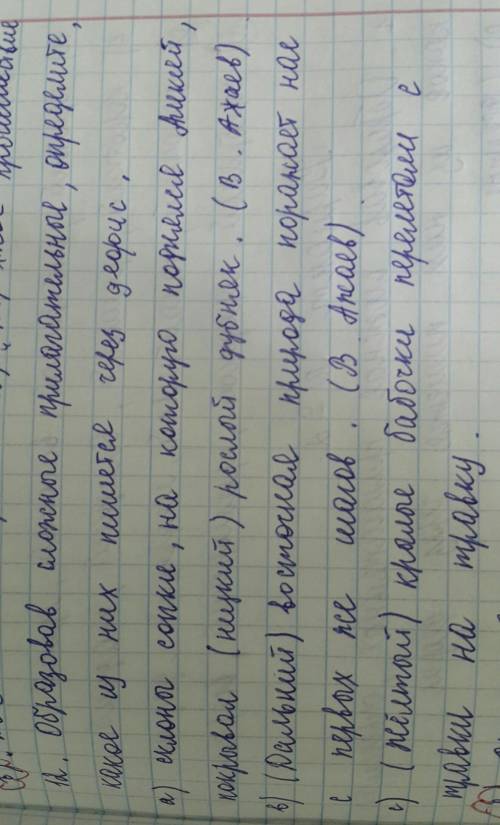 12. Образовав сложное прилагательное, определите,
какое из них пишется через дефис.
а) склоны сопки, на которую поднялся Алексей,
покрывал (низкий) рослый дубняк. (В. Ажаев)
в) (Дальний) восточная природа поражает нас
с первых же шагов. (В. Ажаев)
с) (жёлтый) крылые бабочки перелетали с
травки на травку.